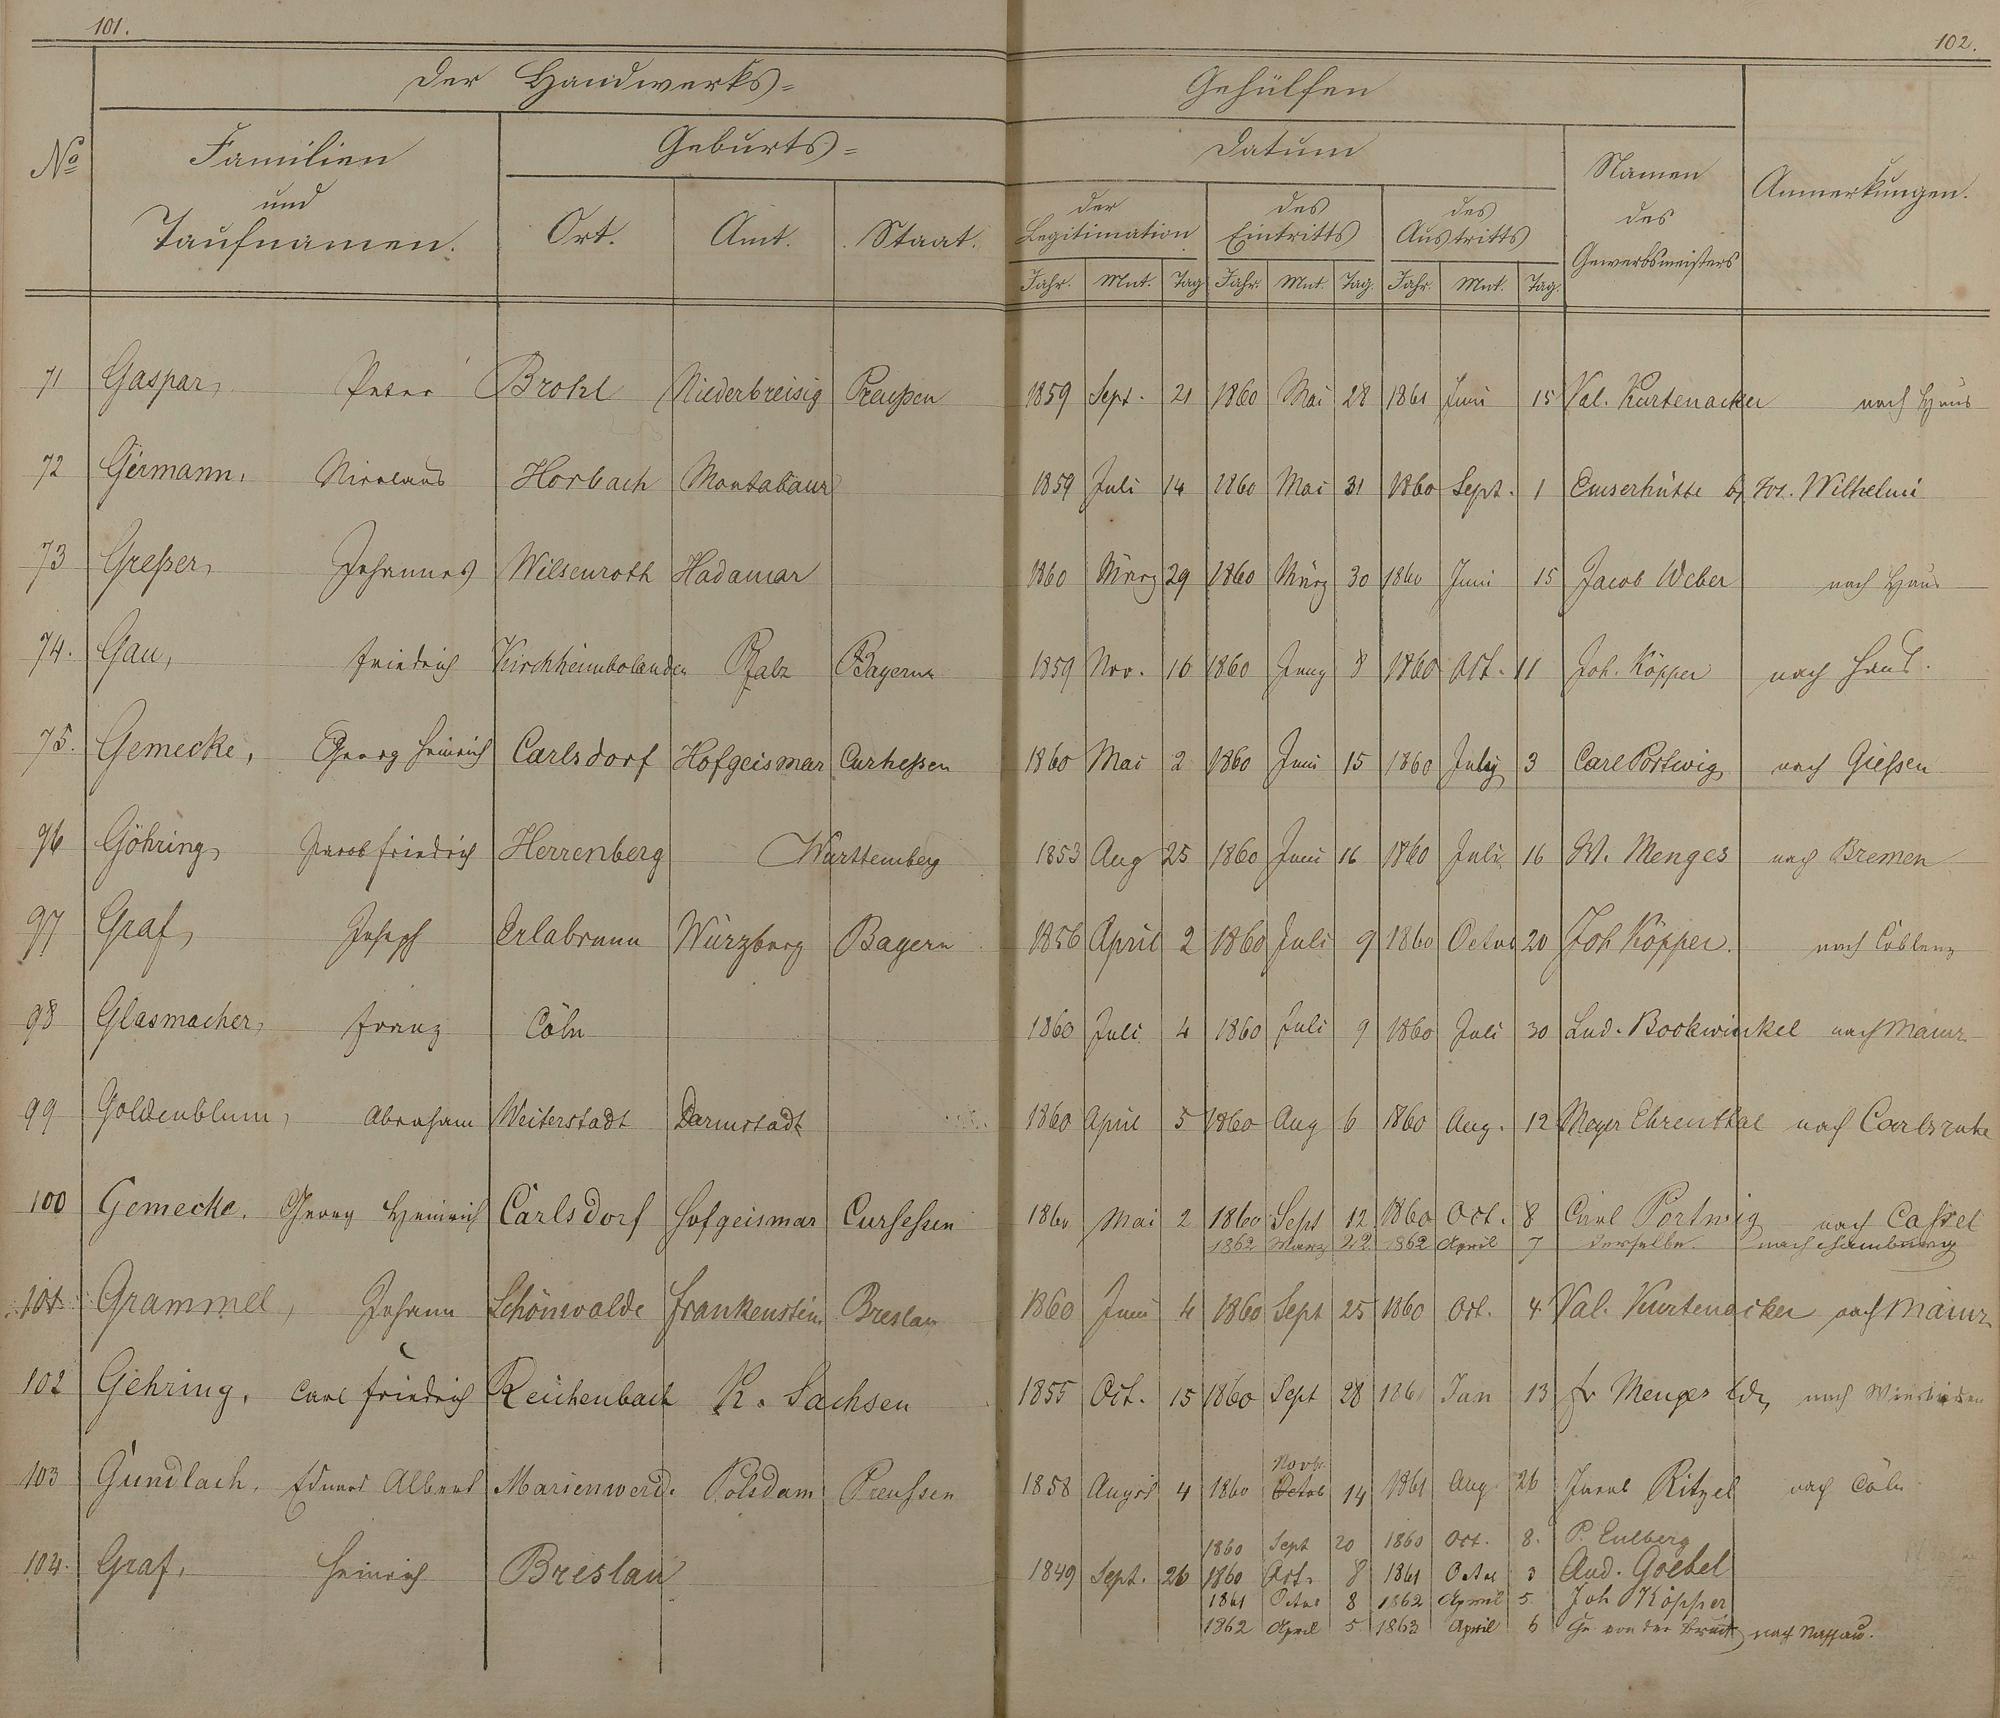 101.
102.
Der Handwerks=
Gehülfen
No
Familien
und
Taufnamen.
Geburts=
Ort.
Amt.
Staat.
Datum
der
Legitimation
des
Eintritts
des
Austritts
Jahr. Mnt. Tag Jahr. Mnt. Tag. Jahr. Mnt. Tag.
Namen
des
Gewerbsmeisters
Anmerkungen.
71 Gaspar, Peter Brohl Niederbreisig Preußen 1859 Sept. 21 1860 Mai 28 1861 Juni 15 Val. Kurtenacker nach Haus
72 Germann, Nicolaus Horbach Montabaur 1859 Juli 14 1860 Mai 31 1860 Sept. 1 Emserhütte Wilhelmi
73 Greßer, Johannes Wilsenroth Hadamar 1860 März 29 1860 März 30 1860 Juni 15 Jacob Weber nach Haus
74. Gau, Friedrich Kirchheimbolanden Pfalz Bayern 1859 Nov. 16 1860 8 1860 Oct. 11 Joh. Köpper nach Haus.
75. Gemecke, Georg Heinrich Carlsdorf Hofgeismar Curheßen 1860 Mai 2 1860 Juni 15 1860 July 3 Carl Portwig nach Gießen
96 Göhring, Jacob Friedrich Herrenberg Württemberg 1853 Aug 25 1860 Juni 16 1860 Juli 16 W. Menges nach Bremen
97 Graf, Joseph Erlabrunn Würzburg Bayern 1856 April 2 1860 Juli 9 1860 Octbr 20 Joh Köpper. nach Coblenz
98 Glasmacher, Franz Cöln 1860 Juli 4 1860 Juli 9 1860 Juli 30 Lud. Bockwinkel nach Mainz
99 Goldenblum, Abraham Weiterstadt Darmstadt 1860 April 5 1860 Aug 6 1860 Aug. 12 Meyer Ehrenthal nach Carlsruhe
100 Gemecke. Georg Heinrich Carlsdorf Hofgeismar Curhessen 1860 Mai 2 1860 Sept 12 1860 Oct. 8 Carl Portwig nach Cassel
1862 März 22 1862 April 7 derselbe. nach Hamburg
101 Grammel, Johann Schönwalde Frankenstein Breslau 1860 Juni 4 1860 Sept 25 1860 Oct. 4. Val. Kurtenacker nach Mainz
102 Gehring, Carl Friedrich Reichenbach K. Sachsen 1855 Oct. 15 1860 Sept 28 1861 Jan 13 Fr Menges nach Wiesbaden
103 Gundlach, Eduard Albert Marienwerd. Potsdam Preussen 1858 August 4 1860 Octbr Novb. 14 1861 Aug 26 Jacob Ritzel nach Cöln
1860 Sept 20 1860 Oct. 8. P. Eulberg
104. Graf, Heinrich Breslau 1849 Sept. 26 1860 Oct. 8 1861 Octbr 3 And. Goebel
1861 Octbr 8 1862 April 5. Joh Köpper
1862 April 5 1863 April 6 von der nach Nassau.